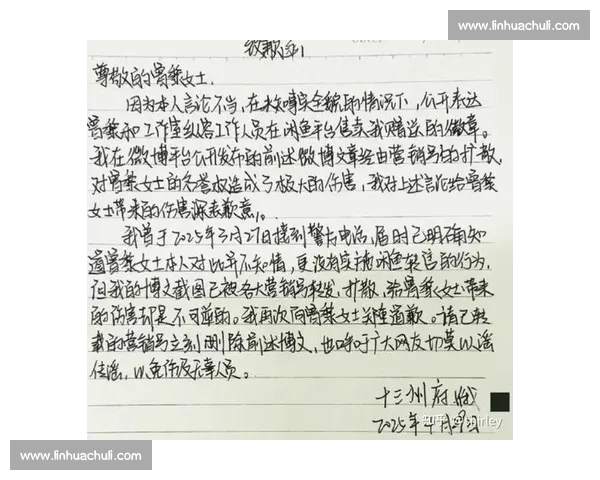 www.linhuachuli.com
www.linhuachuli.com
致歉函
尊敬的曾黎女士.
因为本人言论不当,在未嘚实全貌的情况下,公开表达
曾黎和工作室纵容工作人员在闲鱼平台售卖我赠送的徽章。
我在微博平台公开发布的前述微博文章经由营销号的扩散,
对曾黎女士的名誉权造成了极大的伤害,我对上述言论给曾黎
女士带来的伤害深表歉意。
我曾于2025年3月27日接到警方电话,届时已明确知
道曾黎女士本人对此并不知情,更没有实施闲鱼转售的行为,
但我的博文截图已被各大营销号转发、扩散,给曾黎女士带来
的伤害却是不可逆的。我再次向曾黎女士郑重道歉。请已转
载的营销号立刻删除前述博文,也呼吁广大网友切莫以谣
传谣,以免伤及无辜人员。
十三州府
知乎 @shirley
2025年 月9日
www.linhuachuli.com
www.linhuachuli.com